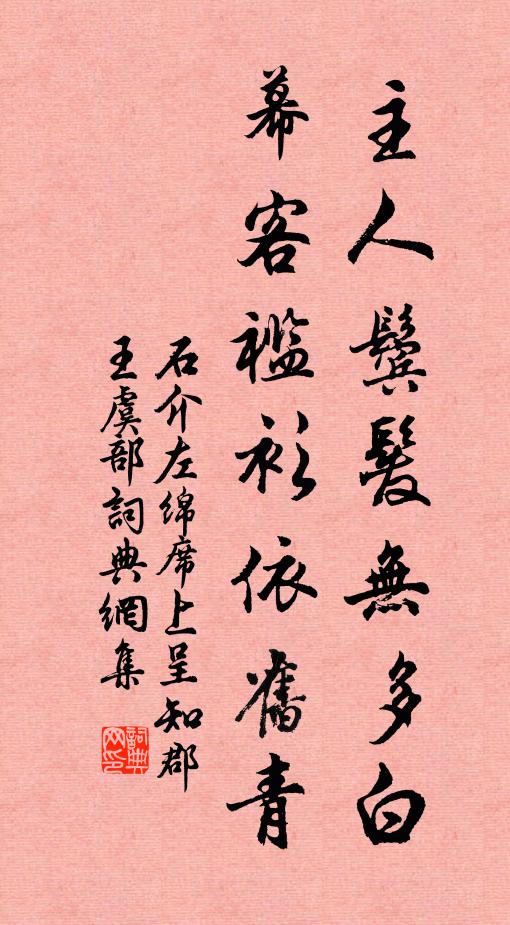 主人鬢髮無多白
幕客襤衫依舊青
石介左綿席上呈知郡
王虞部詞典網集
詞典网印